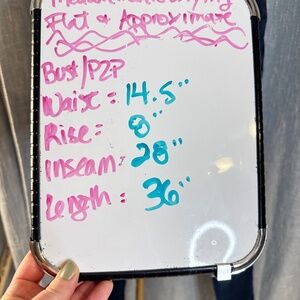 Flat & Approximate
Bust/P2P
Waist: 14.5"
Rise: 8"
Inseam: 28"
Length: 36"